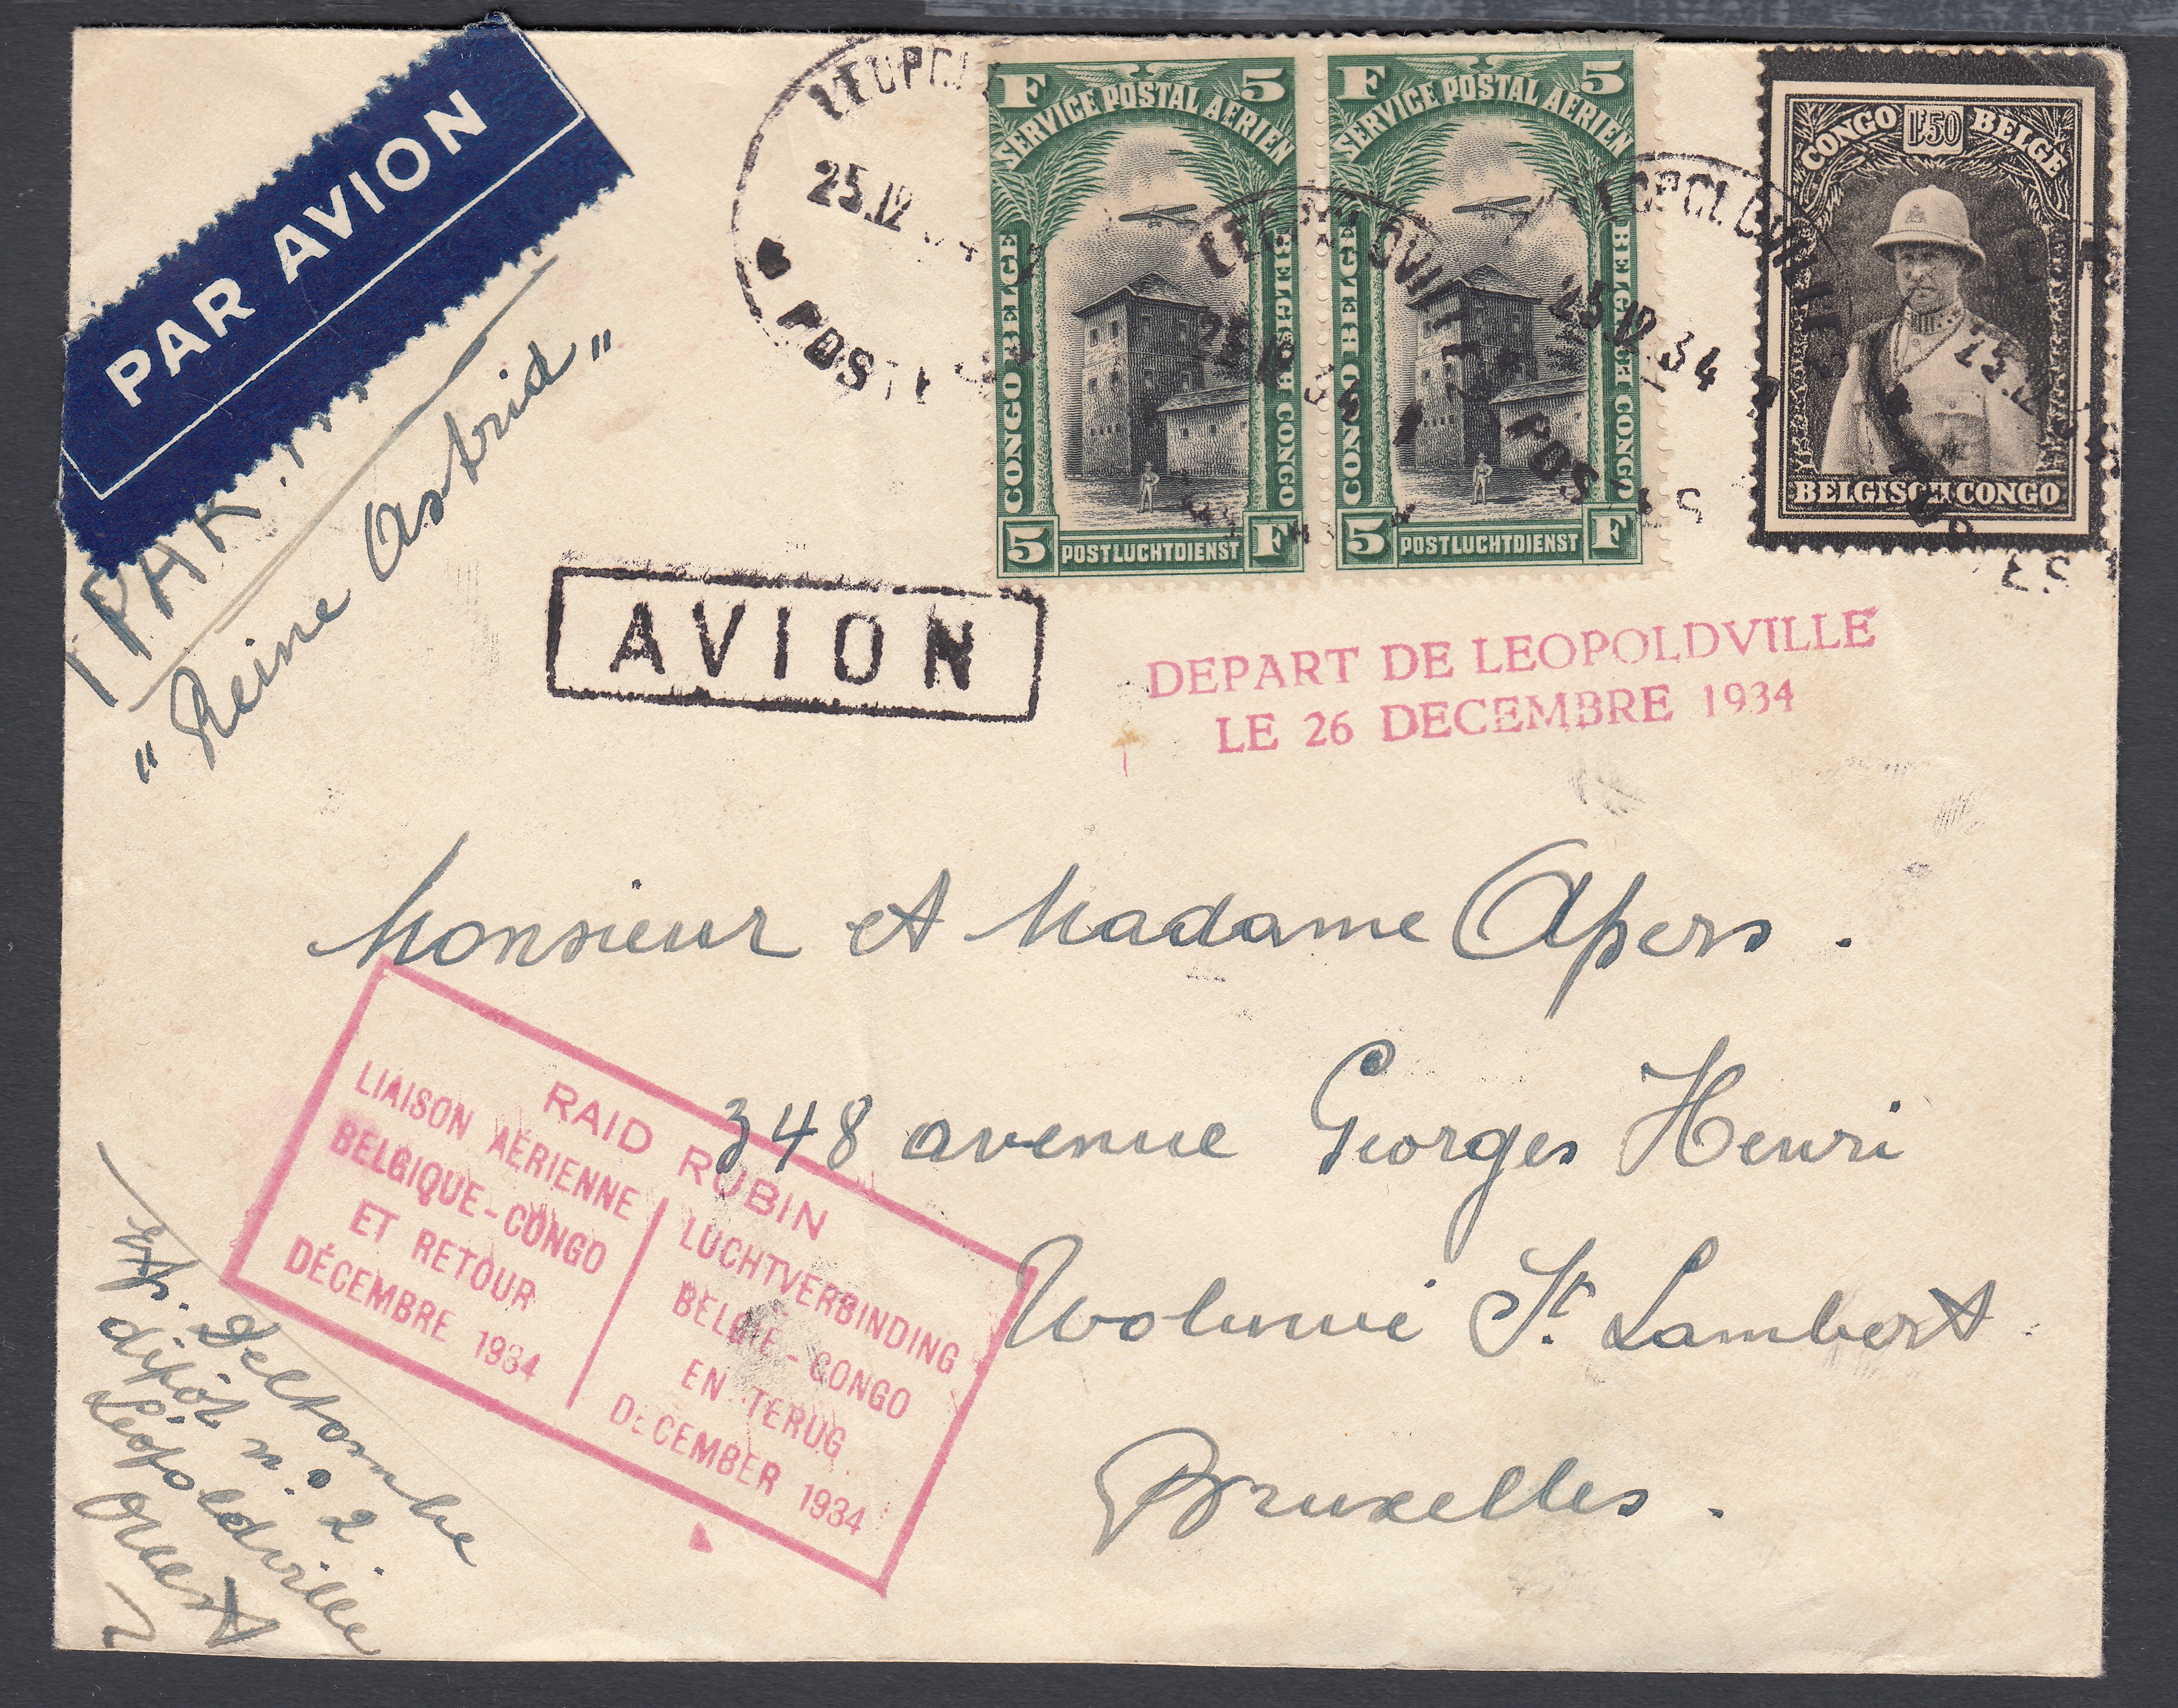 PAR AVION
PAR
"Reine Astrid"
LEOPOL
25.12
POSTE
F 5
SERVICE POSTAL AERIEN
CONGO BELGE
BELGISCH CONGO
5 POSTLUCHTDIENST F
F 5
SERVICE POSTAL AERIEN
CONGO BELGE
BELGISCH CONGO
5 POSTLUCHTDIENST F
LEOPOLDVILLE
25.12.34
CONGO 1F50 BELGE
BELGISCH CONGO
AVION
DEPART DE LEOPOLDVILLE
LE 26 DECEMBRE 1934
Monsieur et Madame Apers.
348 avenue Georges Henri
Woluwe St. Lambert
Bruxelles.
RAID RUBIN
LIAISON AÉRIENNE
BELGIQUE-CONGO
ET RETOUR
DÉCEMBRE 1934
LUCHTVERBINDING
BELGIE-CONGO
EN TERUG
DECEMBER 1934
Deltombe
dépôt n° 2.
Léopoldville
Ouest